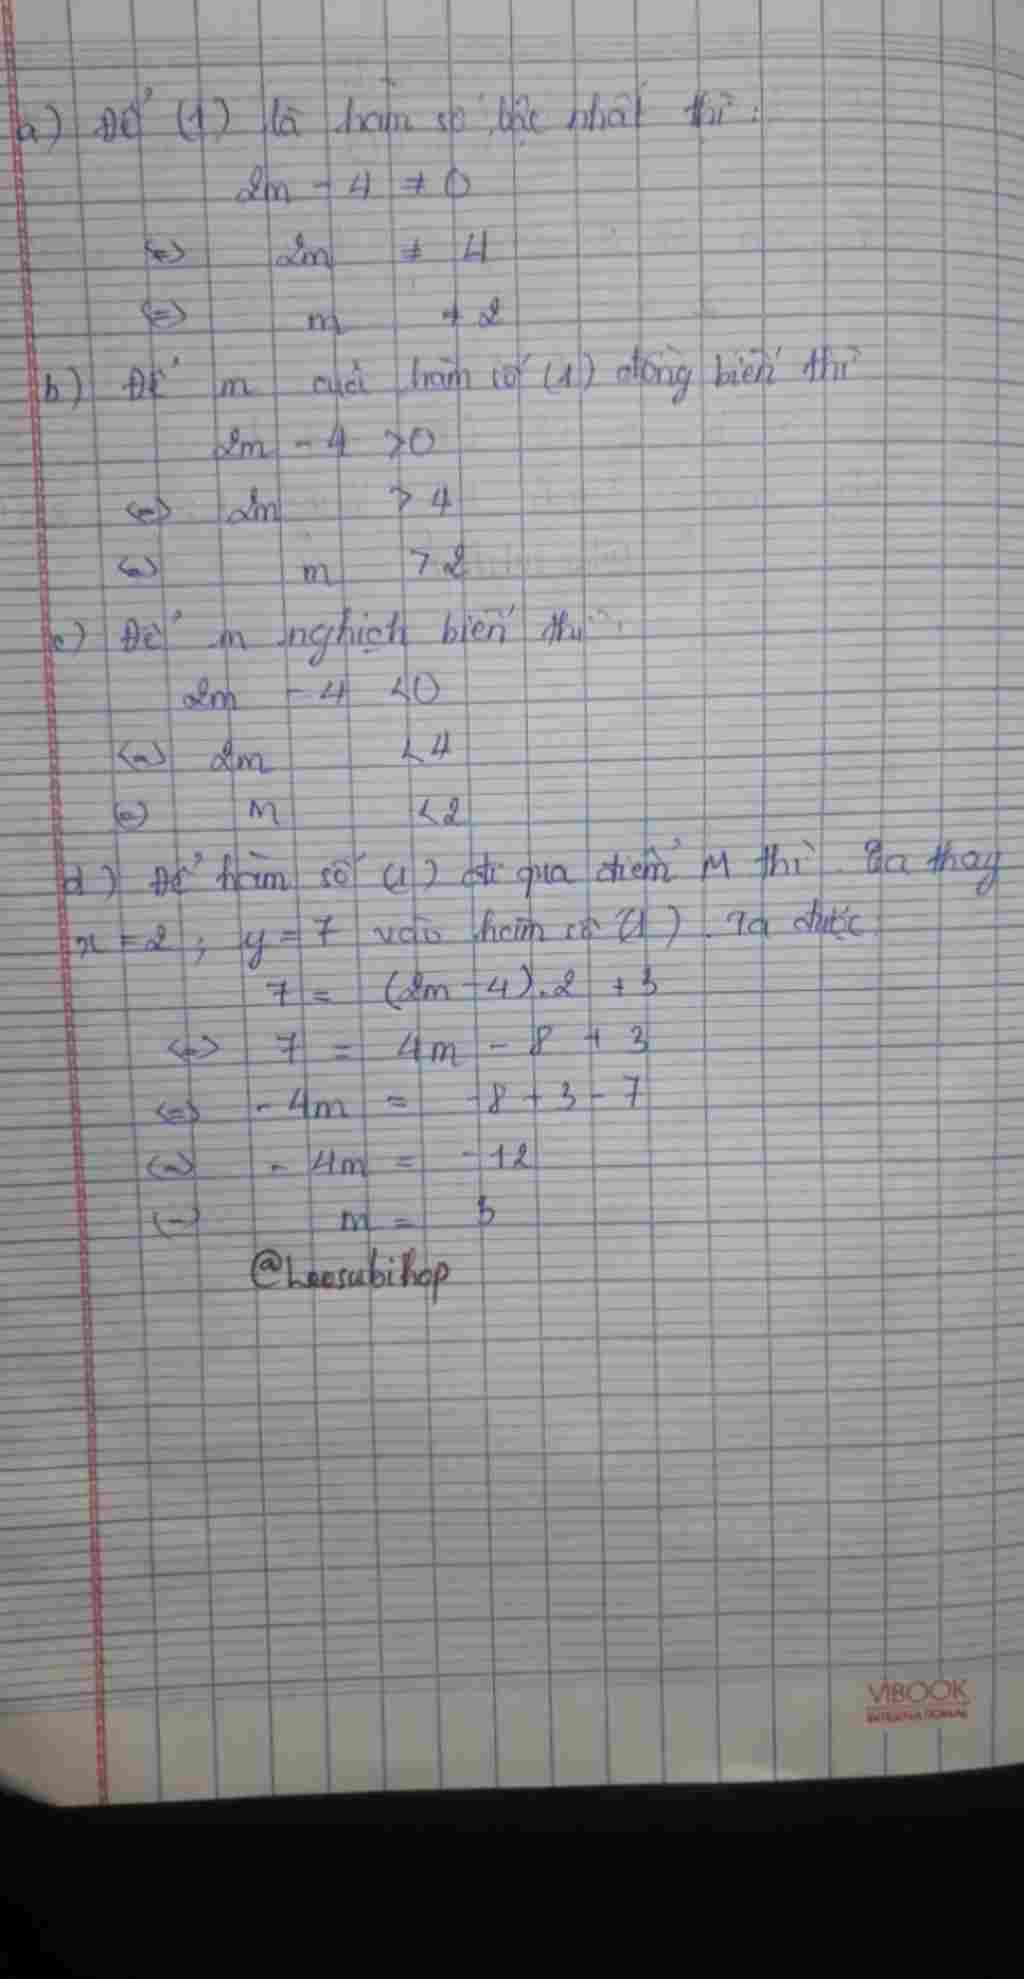 a) Để (1) là hàm số bậc nhất thì:
2m - 4 ≠ 0
<=> 2m ≠ 4
<=> m ≠ 2
b) Để m của hàm số (1) đồng biến thì
2m - 4 > 0
<=> 2m > 4
<=> m > 2
c) Để m nghịch biến thì:
2m - 4 < 0
<=> 2m < 4
<=> m < 2
d) Để hàm số (1) đi qua điểm M thì. Ta thay
x = 2; y = 7 vào hàm số (1). Ta được
7 = (2m - 4).2 + 3
<=> 7 = 4m - 8 + 3
<=> -4m = -8 + 3 - 7
<=> -4m = -12
<=> m = 3
@Leesubihop
VIBOOK
INTERNATIONAL